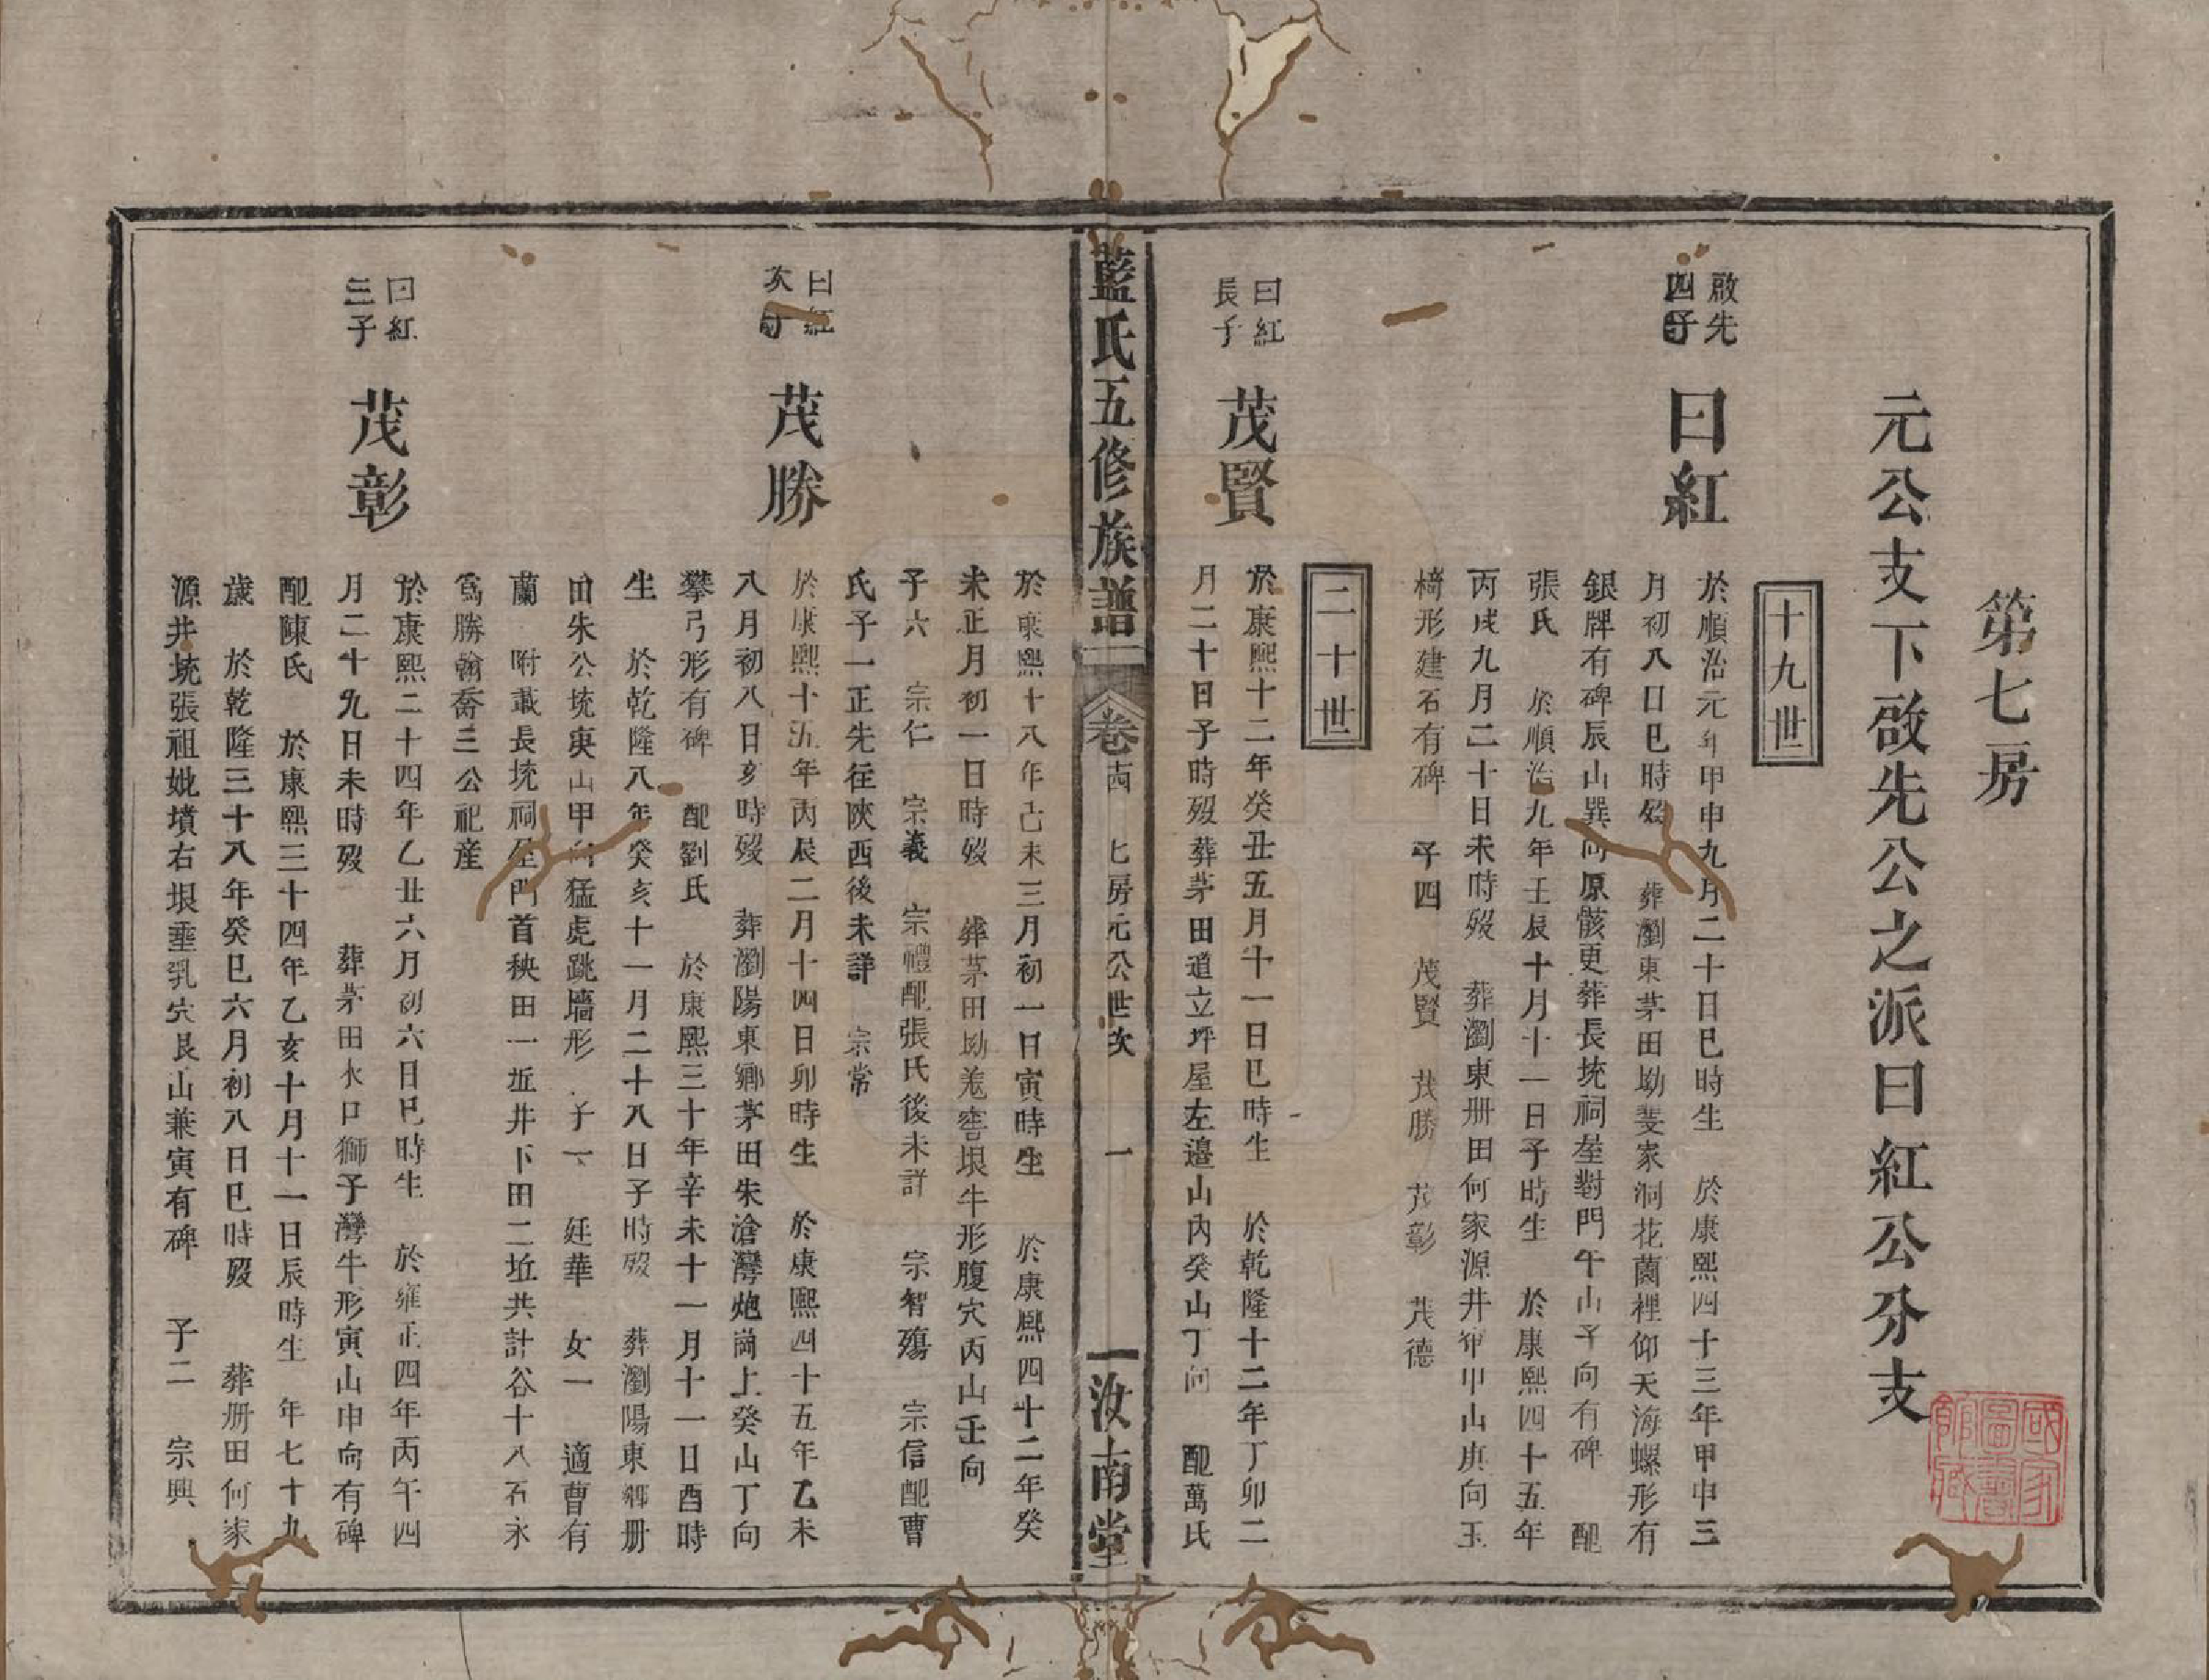 第七房
元公支下啟先公之派曰紅公分支
十九世
啟先
四子
曰紅
於順治元年甲申九月二十日巳時生 於康熙四十三年甲申三
月初八日巳時歿 葬瀏東茅田坳斐家洞花薗裡仰天海螺形有
銀牌有碑辰山巽向原骸更葬長垸祠堂對門午山子向有碑 配
張氏 於順治九年壬辰十月十一日子時生 於康熙四十五年
丙戌九月二十日未時歿 葬瀏東册田何家源井 甲山庚向玉
椅形建石有碑 子四 茂賢 茂勝 茂彰 茂德
二十世
曰紅
長子
茂賢
於康熙十二年癸丑五月十一日巳時生 於乾隆十二年丁卯二
月二十日子時歿葬茅田道立坪屋左邉山內癸山丁向 配萬氏
藍氏五修族譜
卷十四 七房元公世次 一
汝南堂
於康熙十八年己未三月初一日寅時生 於康熙四十二年癸
未正月初一日時歿 葬茅田坳羗窖垠牛形腹穴丙山壬向
子六 宗仁 宗義 宗禮配張氏後未詳 宗智殤 宗信配曹
氏子一正先往陝西後未詳 宗常
曰紅
次子
茂勝
於康熙十五年丙辰二月十四日卯時生 於康熙四十五年乙未
八月初八日亥時歿 葬瀏陽東鄉茅田朱滄灣炮崗上癸山丁向
攀弓形有碑 配劉氏 於康熙三十年辛未十一月十一日酉時
生 於乾隆八年癸亥十一月二十八日子時歿 葬瀏陽東鄉册
田朱公垸庚山甲向猛虎跳墻形 子一 廷華 女一 適曹有
蘭 附載長垸祠堂門首秧田一坵井下田二坵共計谷十八石永
爲勝翰喬三公祀産
曰紅
三子
茂彰
於康熙二十四年乙丑六月初六日巳時生 於雍正四年丙午四
月二十九日未時歿 葬茅田水口獅子灣牛形寅山申向有碑
配陳氏 於康熙三十四年乙亥十月十一日辰時生 年七十九
歲 於乾隆三十八年癸巳六月初八日巳時歿 葬册田何家
源井垸張祖妣墳右垠垂乳穴艮山兼寅有碑 子二 宗興
國家圖書館藏